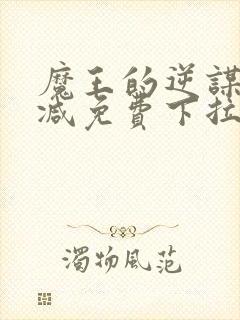 魔王的逆謀
减免費下拉
濁物風范